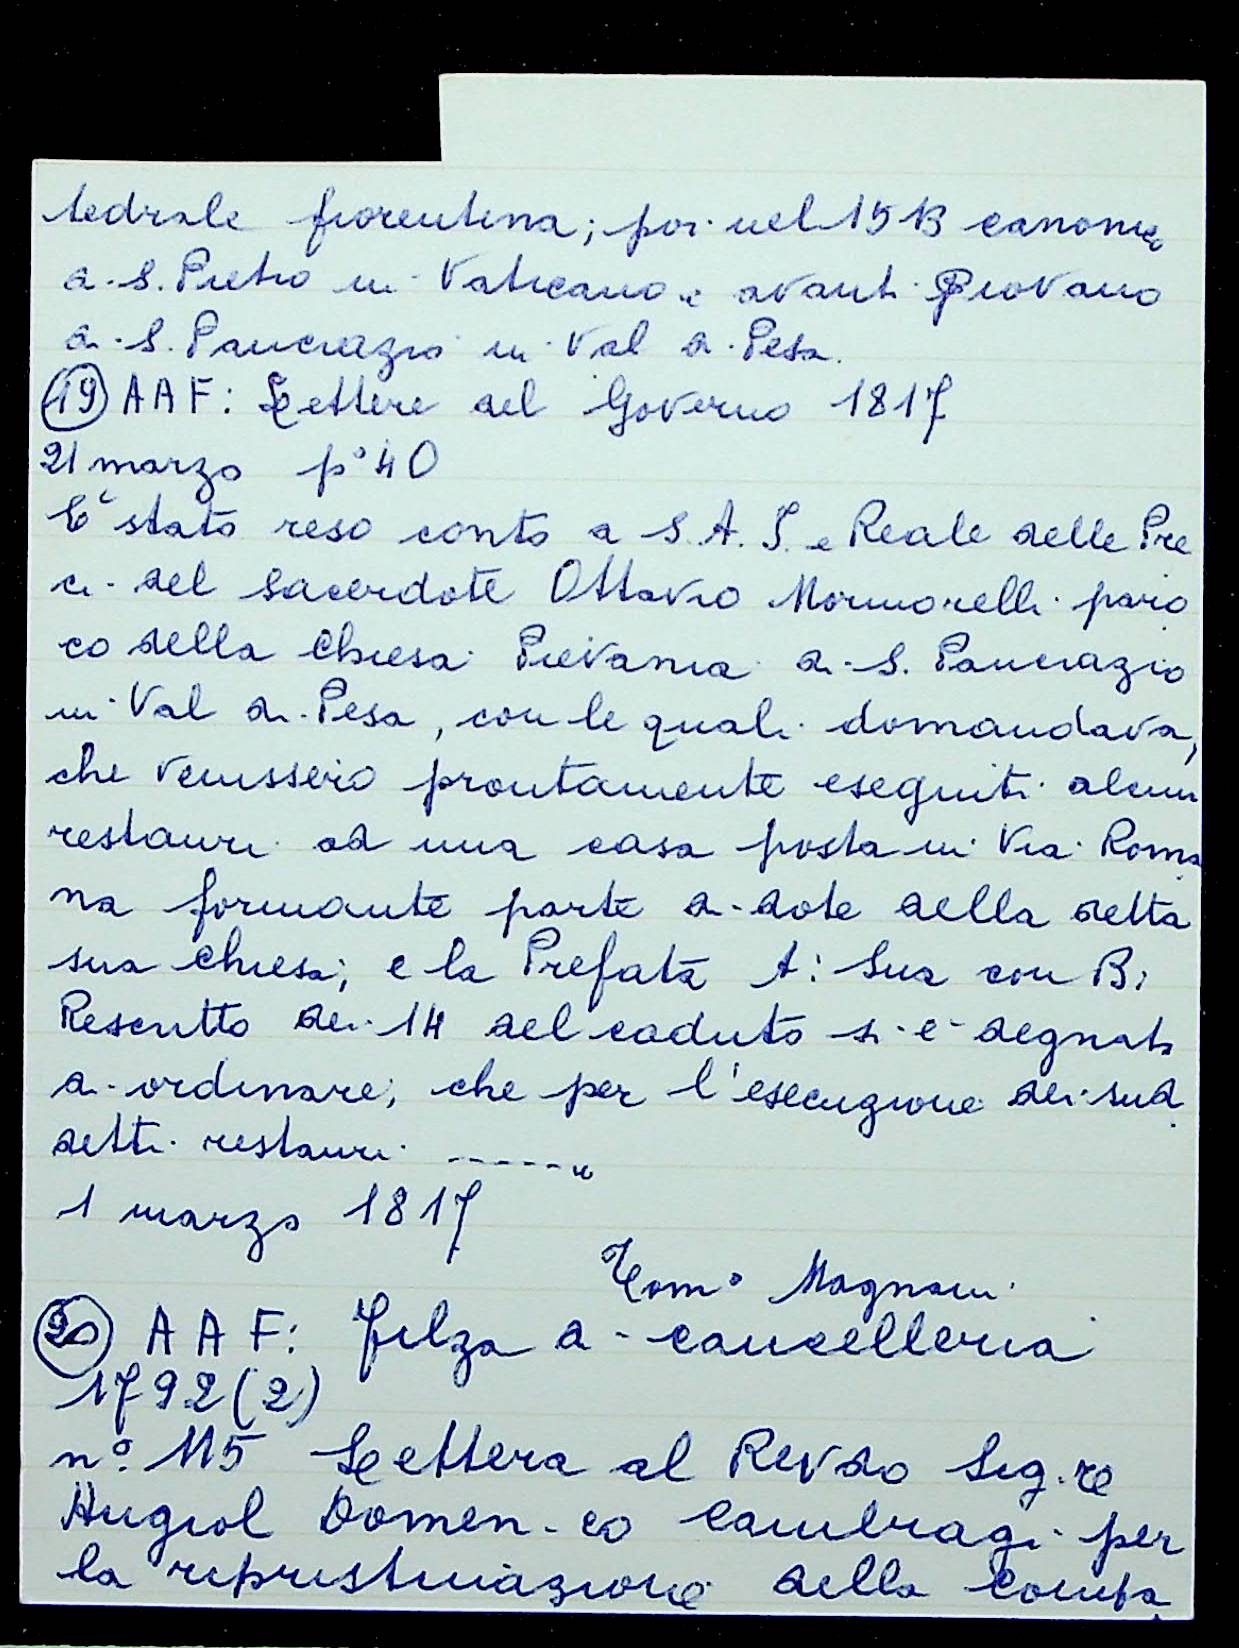 tedrale fiorentina; poi nel 1513 canonico
a S. Pietro in Vaticano e avanti Piovano
a S. Pancrazio in Val di Pesa.
19 AAF: Lettere del Governo 1817
21 marzo p° 40
E' stato reso conto a S.A.I. e Reale delle Pre
ci del sacerdote Ottavio Mormorelli paro
co della Chiesa Pievania di S. Pancrazio
in Val di Pesa, con le quali domandava,
che venissero prontamente eseguiti alcuni
restauri ad una casa posta in Via Roma
na formante parte di dote della detta
sua chiesa; e la Prefata A: Sua con B:
Rescritto dei 14 del caduto si è degnata
di ordinare, che per l'esecuzione dei sud
detti restauri ------"
1 marzo 1817
Tom° Magnani
AAF: Filza di cancelleria
1792 (2)
n°. 115 Lettera al Revdo Sig.re
Domen-co Cambiagi per
la ripristinazione della Compa